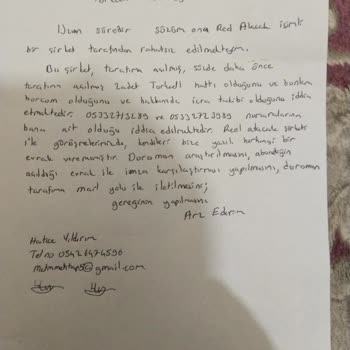 Uzun süredir sözüm ona Red Alacak isimli
bir şirket tarafından rahatsız edilmekteyim.
Bu şirket, tarafıma açılmış, sözde daha önce
tarafıma açılmış 2 adet Turkcell hattı olduğunu ve bunların
borcum olduğunu ve hakkımda icra takibi olduğunu iddia
etmektedir. 05332713289 ve 05332723989 numaralarının
bana ait olduğu iddia edilmektedir. Red alacak şirketi
ile görüşmelerimizde, kendileri bize yazılı herhangi bir
evrak vermemiştir. Durumun araştırılmasını, aboneliğin
açıldığı evrak ile imza karşılaştırması yapılmasını, durumun
tarafıma mail yolu ile iletilmesini;
gereğinin yapılmasını
Arz Ederim
Hatice Yıldırım
Tel no 05426474596
@gmail.com